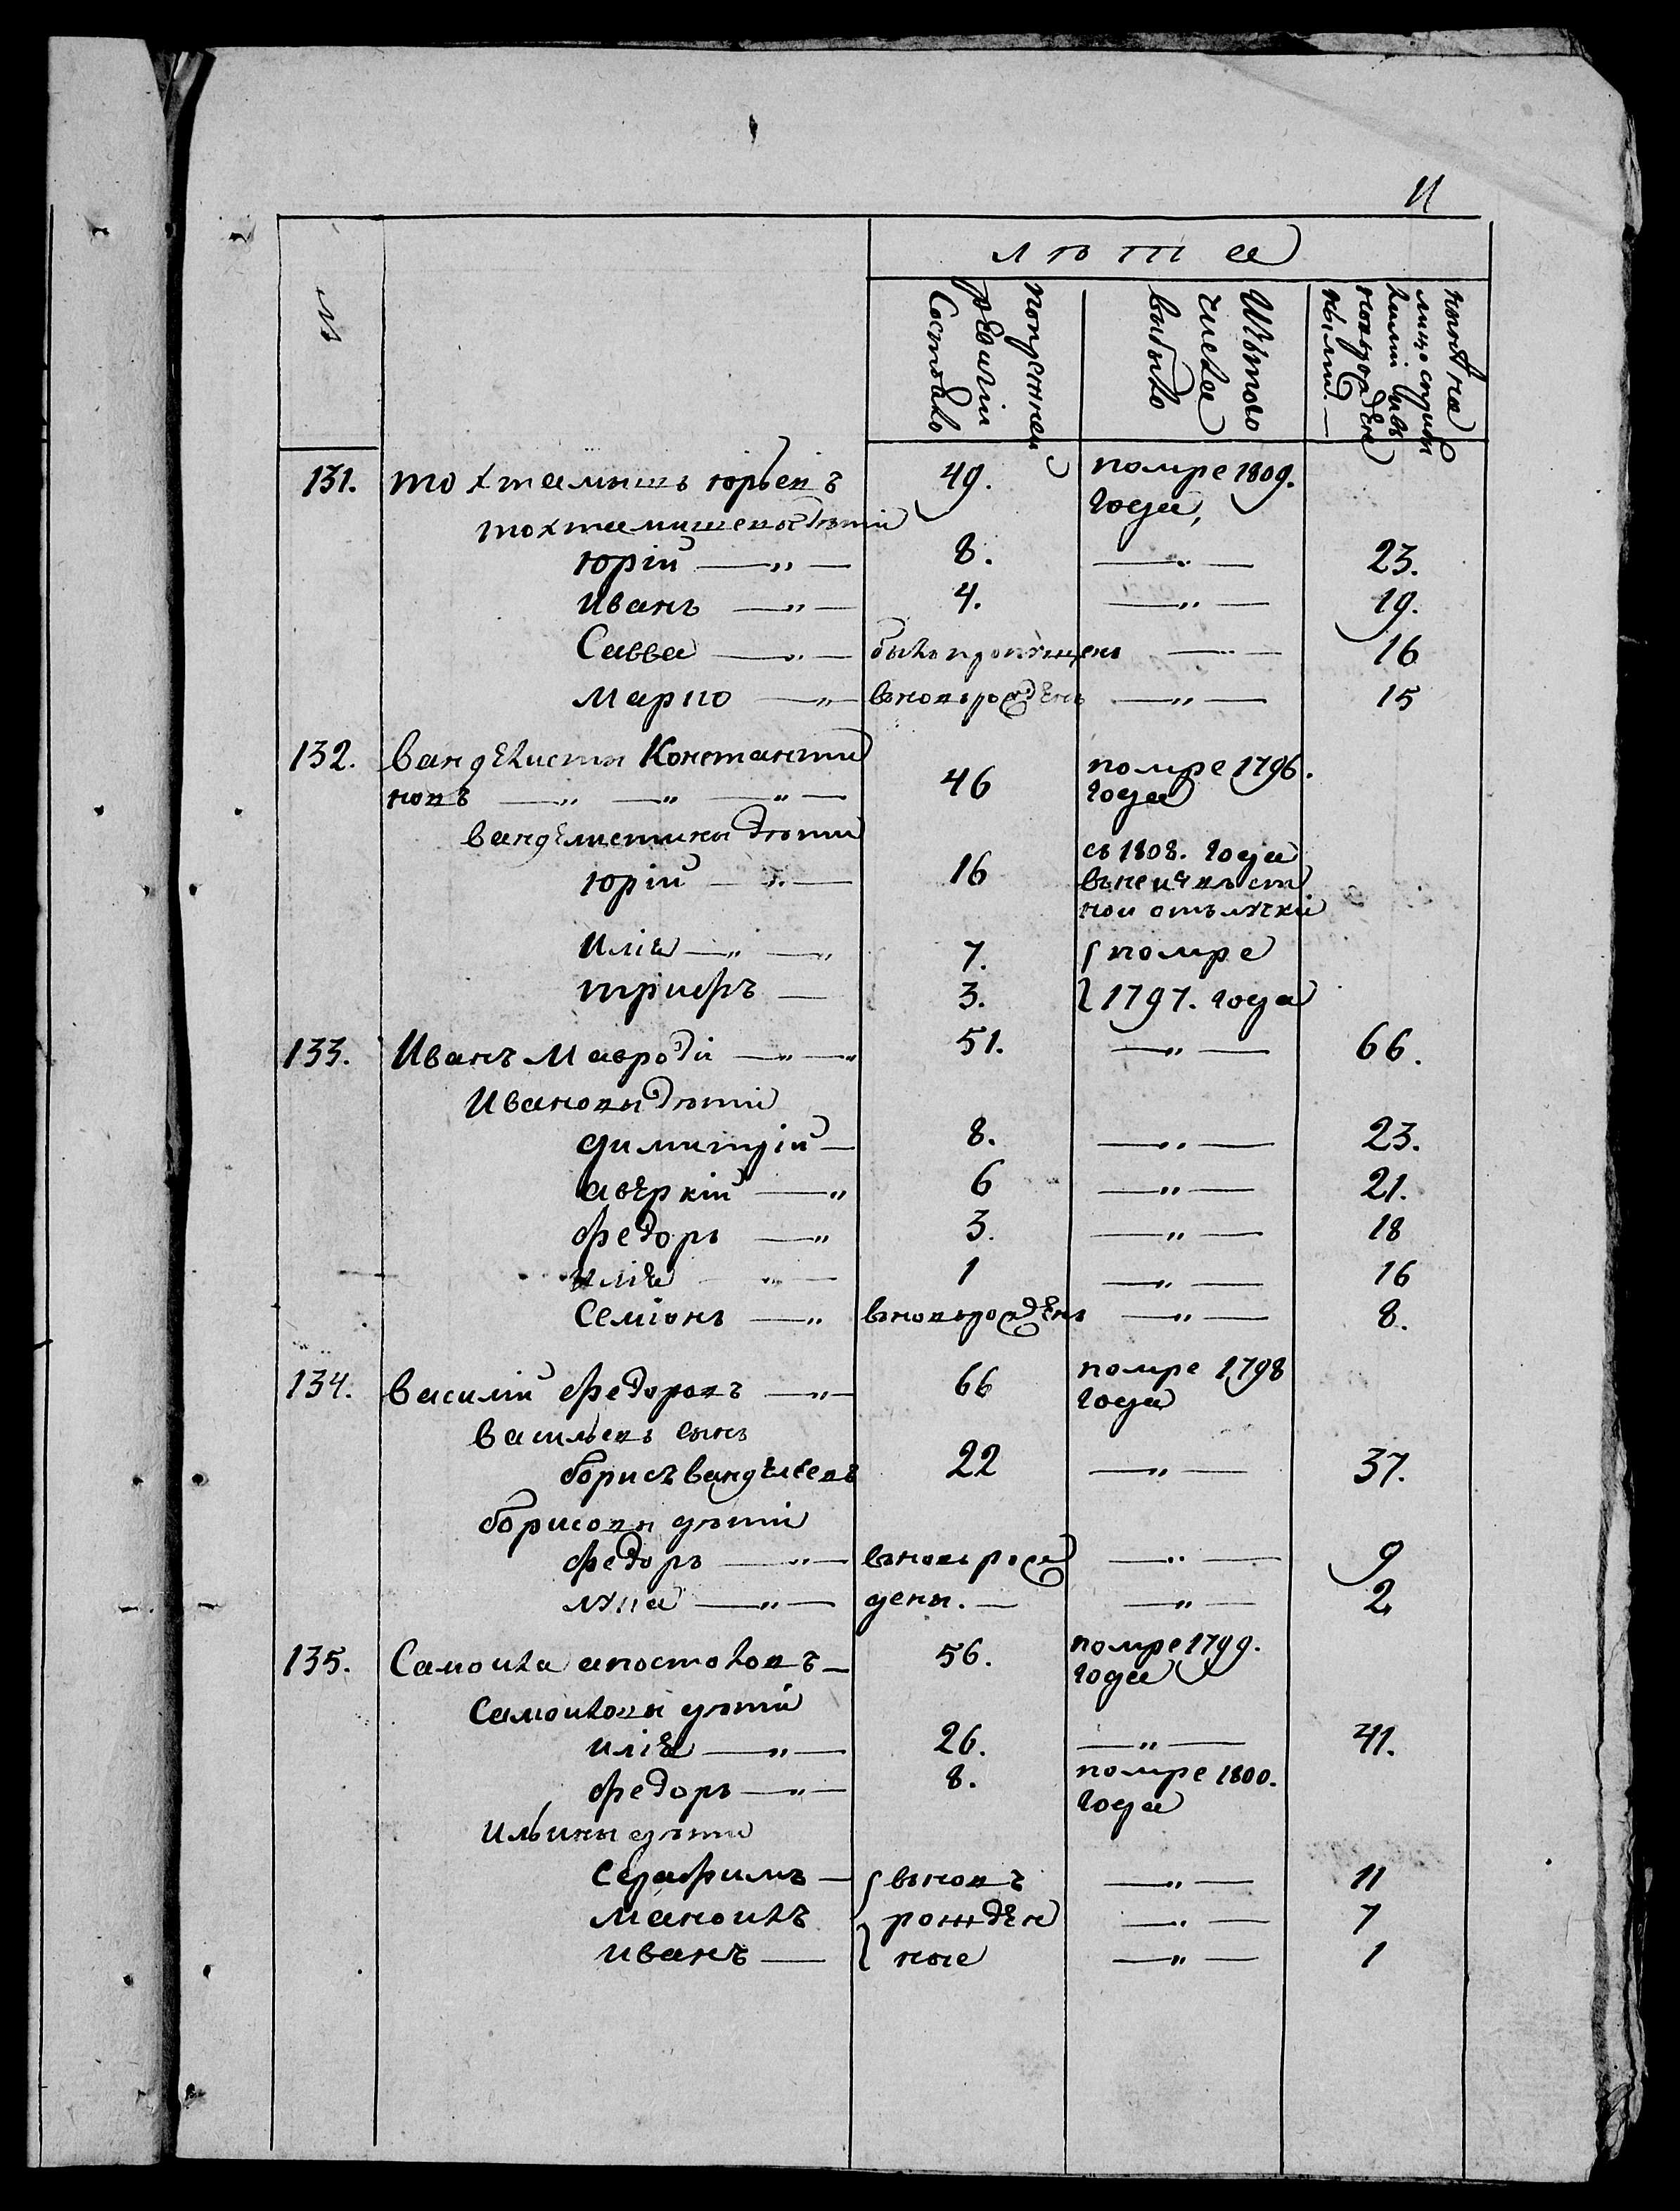 11
лѣта
№
попрежней ревизіи Состояло
Исътого числа выбыло
ныне на лицо съ новорожденными
131. тохтамышъ юрьевъ 49. помре 1809. года,
тохтамишевы дѣти
юрій 8. 23.
иванъ 4. 19.
Савва былъ пропущенъ 16
марко вновьрожденъ 15
132. вангелисти Константиновъ 46 помре 1796. года
вангелистини дѣти
юрій 16 съ 1808. года
въ неизвѣст
ной отълучки
илія 7. помре
трифъ 3. 1797. года
133. Иванъ Мавроди 51. 66.
Ивановы дѣти
димитрій 8. 23.
аверкій 6 21.
федоръ 3. 18
илія 1 16
Семіонъ вновьрожденъ 8.
134. василій федоровъ 66 помре 1798 года
васильевъ сынъ
борисъ вангельевъ 22 37.
борисовы дѣти
федоръ вновь рож 9
лупа дены. 2
135. Самоила апостоловъ 56. помре 1799. года
Самоиловы дѣти
илія 26. 41.
федоръ 8. помре 1800. года
ильины дѣти
Серафимъ вновъ 11
маноилъ рожден 7
иванъ ные 1